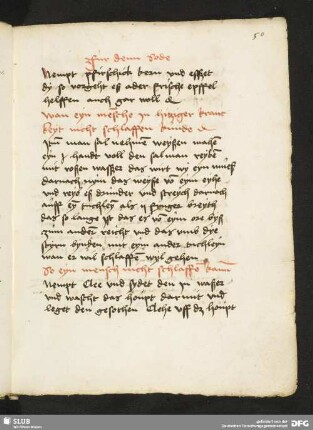 50
für denn Sode
Nempt pfirschick kern und esset
dy so vorgeht es ader frische epffel
helffen auch gar woll
wan eyn mesche jn hitziger kranc
keyt nicht schlaffen kunde
man sal nehmen weyssen mahen
eyn handt voll den sal man reyben
mit rosen wasser das wirt wy eyn mues
darnach nym das weysse von eym eyhe
und reyb es drunder und streych darnach
auff eyn tuchleyn als ij fynger breyth
das so lange ist das es von eym ore byss
zum andern reicht und das umb dye
styrn bynden mit eym ander tuchleyn
wan er wil schlaffen gehen
So eyn mensch nicht schlaffe kann
Nempt Clee und sydet den jn wasser
und wascht das houpt dar mit und
leget den gesochen Clehe uff dz houpt
SLUB
DFG